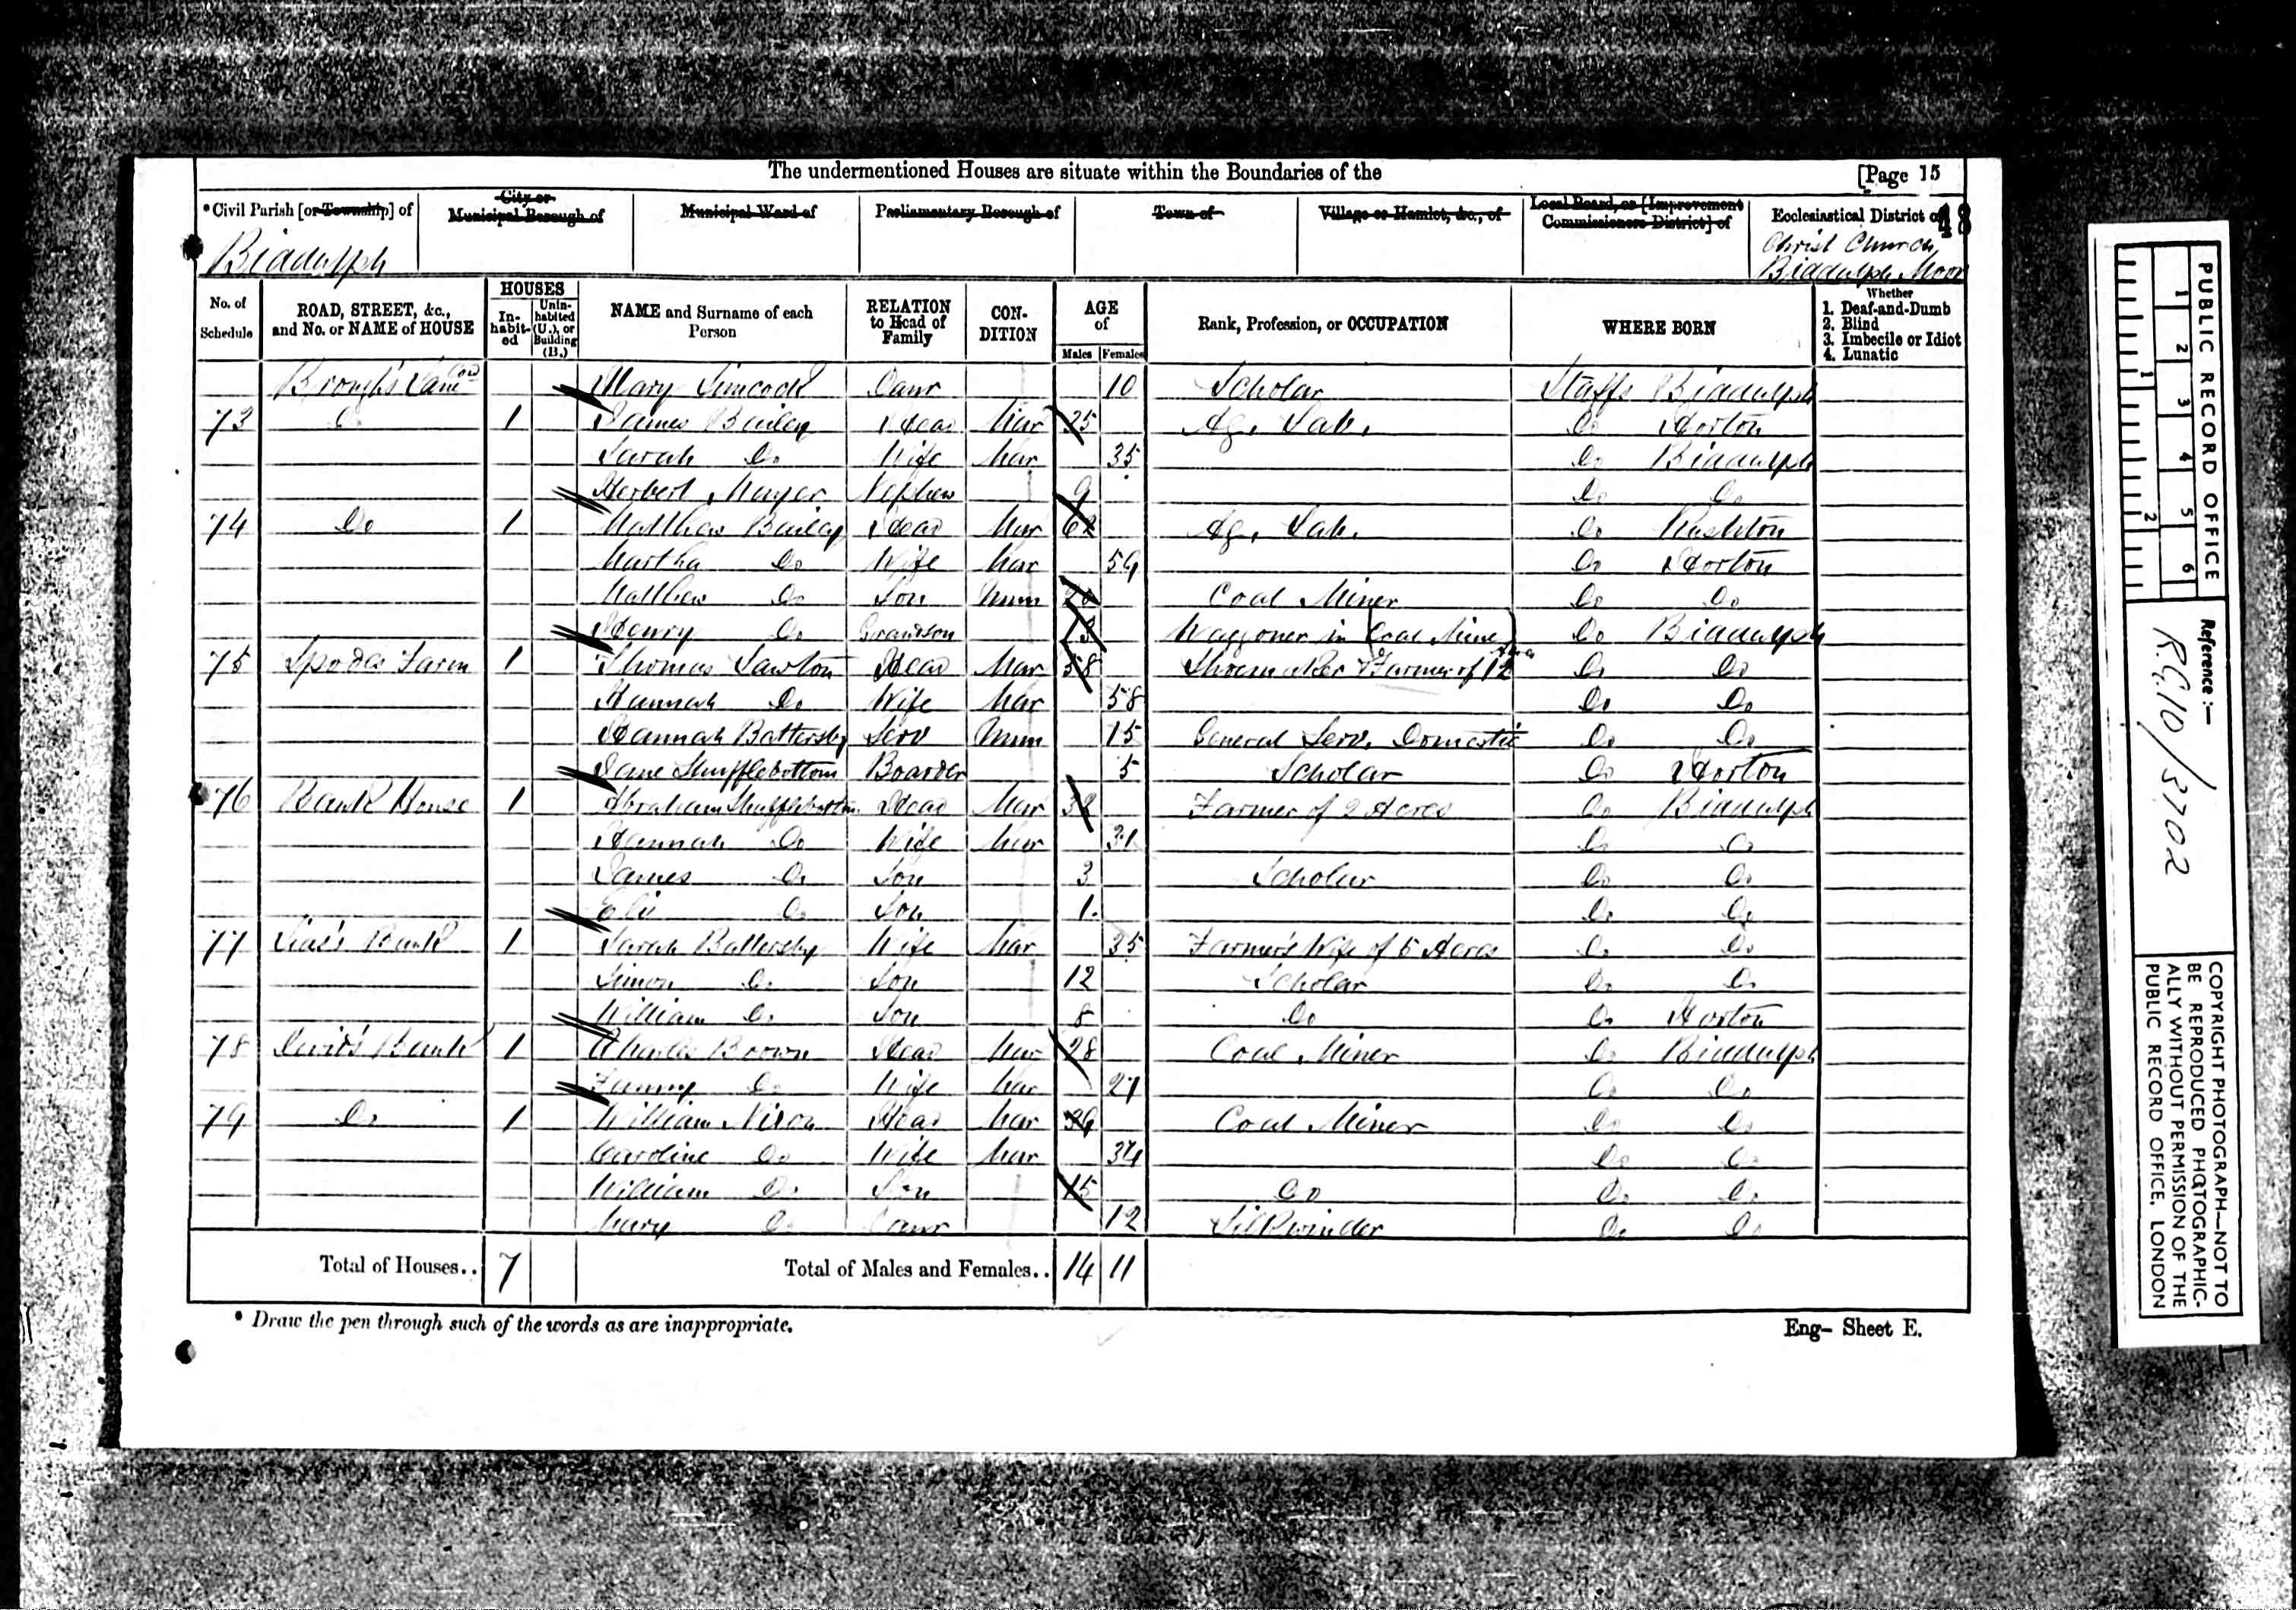 The undermentioned Houses are situate within the Boundaries of the [Page 15
48
* Civil Parish [or Township] of City or Municipal Borough of Municipal Ward of Parliamentary Borough of Town of Village or Hamlet, &c., of Local Board, or [Improvement Commissioners District] of Ecclesiastical District of
Biddulph Christ Church, Biddulph Moor
No. of Schedule ROAD, STREET, &c., and No. or NAME of HOUSE HOUSES In-habit-ed Unin-habited (U.), or Building (B.) NAME and Surname of each Person RELATION to Head of Family CON-DITION AGE of Males Females Rank, Profession, or OCCUPATION WHERE BORN Whether 1. Deaf-and-Dumb 2. Blind 3. Imbecile or Idiot 4. Lunatic
Brough's Lane Mary Simcock Daur 10 Scholar Staffs Biddulph
73 Do 1 James Bailey Head Mar 35 Ag. Lab. Do Horton
Sarah Do Wife Mar 35 Do Biddulph
Herbert Mayer Nephew 9 Do Do
74 Do 1 Matthew Bailey Head Mar 62 Ag. Lab. Do Rushton
Martha Do Wife Mar 59 Do Horton
Matthew Do Son Unm 20 Coal Miner Do Do
Henry Do Grandson 13 Waggoner in (Coal Mine) Do Biddulph
75 Spodes Farm 1 Thomas Lawton Head Mar 58 Shoemaker & Farmer of 12 Do Do
Hannah Do Wife Mar 58 Do Do
Hannah Battersby Serv Unm 15 General Serv. Domestic Do Do
Jane Shufflebottom Boarder 5 Scholar Do Horton
76 Bank House 1 Abraham Shufflebottom Head Mar 32 Farmer of 2 Acres Do Biddulph
Hannah Do Wife Mar 31 Do Do
James Do Son 3 Scholar Do Do
Eli Do Son 1 Do Do
77 Bank 1 Sarah Battersby Wife Mar 35 Farmer's Wife of 5 Acres Do Do
Simon Do Son 12 Scholar Do Do
William Do Son 8 Do Do Horton
78 David's Bank 1 Charles Brown Head Mar 28 Coal Miner Do Biddulph
Fanny Do Wife Mar 27 Do Do
79 Do 1 William Nixon Head Mar 39 Coal Miner Do Do
Caroline Do Wife Mar 34 Do Do
William Do Son 15 Do Do Do
Mary Do Daur 12 Silk winder Do Do
Total of Houses.. 7 Total of Males and Females.. 14 11
* Draw the pen through such of the words as are inappropriate.
Eng- Sheet E.
PUBLIC RECORD OFFICE
1 2 3 4 5 6
1 2
Reference :-
R.G.10/3702
COPYRIGHT PHOTOGRAPH—NOT TO
BE REPRODUCED PHOTOGRAPHIC-
ALLY WITHOUT PERMISSION OF THE
PUBLIC RECORD OFFICE, LONDON